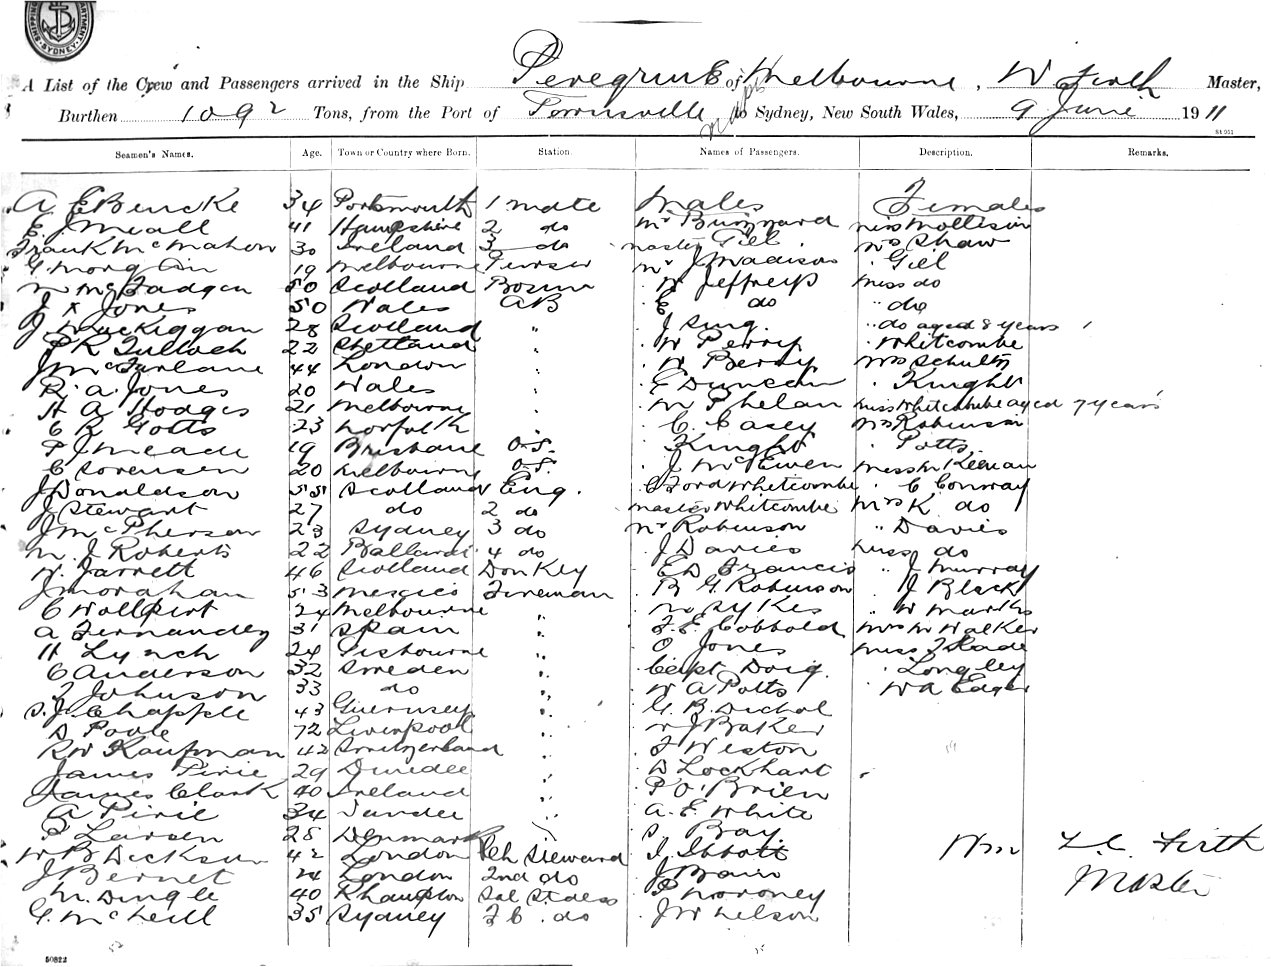 SHIPPING DEPARTMENT. SYDNEY.
A List of the Crew and Passengers arrived in the Ship Peregrine of Melbourne, W Firth Master,
Burthen 1092 Tons, from the Port of Townsville to Sydney, New South Wales, 9 June 1911
St 951
Seamen's Names. Age. Town or Country where Born. Station. Names of Passengers. Description. Remarks.
A E Bencke 34 Portsmouth 1 mate Males Females
E. J Meall 41 Hampshire 2 do Mr Buzzard Miss Mollison
Frank McMahon 30 Ireland 3 do Master Gill Mrs Shaw
G. Morgan 19 Melbourne Purser Mr J Madison Gill
M McFadgen 50 Scotland Bosun W Jeffreys Miss do
J x Jones 50 Wales AB E do " do
J MacKiggan 28 Scotland " J Sing. " do aged 8 years 1
P R Tulloch 22 Shetland " W Perry Whitcombe
J McFarlane 44 London " W Berry Mrs Schultz
R. A. Jones 20 Wales " E Duncan Knight
H A Hodges 21 Melbourne " M Phelan Miss Whitcombe aged 7 years
C R Gotts 23 Norfolk " C. Casey Mrs Robinson
P J Meade 19 Brisbane O.S. Knight Potts
C Sorensen 20 Melbourne O.S. J McEwen Miss M Keenan
J Donaldson 55 Scotland 1 Eng. C Ford Whitcombe C Conway
J Stewart 27 do 2 do Master Whitcombe Mrs K do
J McPherson 23 Sydney 3 do Mr Robinson " Davies
M. J Roberts 22 Ballarat 4 do J Davies Miss do
W. Jarrett 46 Scotland Donkey E D Francis " J Murray
J Morahan 53 Mexico Fireman R G Robinson J Black
C Wallpert 24 Melbourne " Sykes " W Marks
A Fernandez 31 Spain " F. E. Cobbold Mrs M Walker
H Lynch 24 " O Jones Miss J Slade
C Anderson 32 Sweden " Capt Doig. Longley
J Johnson 33 do " W A Potts W A Edgar
S. J. Chappell 43 Guernsey " G. B. Dichol
D Poole 72 Liverpool " W J Baker
R W Kaufman 42 Switzerland " J Weston
James Pirie 29 Dundee " D Lockhart
James Clark 40 Ireland " P O'Brien
A Pirie 34 Dundee " A. E White
P Larsen 25 Denmark " S. Bay
W B Dickson 42 London Ch Steward J. Ibbott Wm L. C. Firth
J Bernet 24 London 2nd do J Bain Master
M. Dingle 40 Rhampton Sal Stdess P Moroney
G. McNeill 35 Sydney F C. do J W Nelson
50822